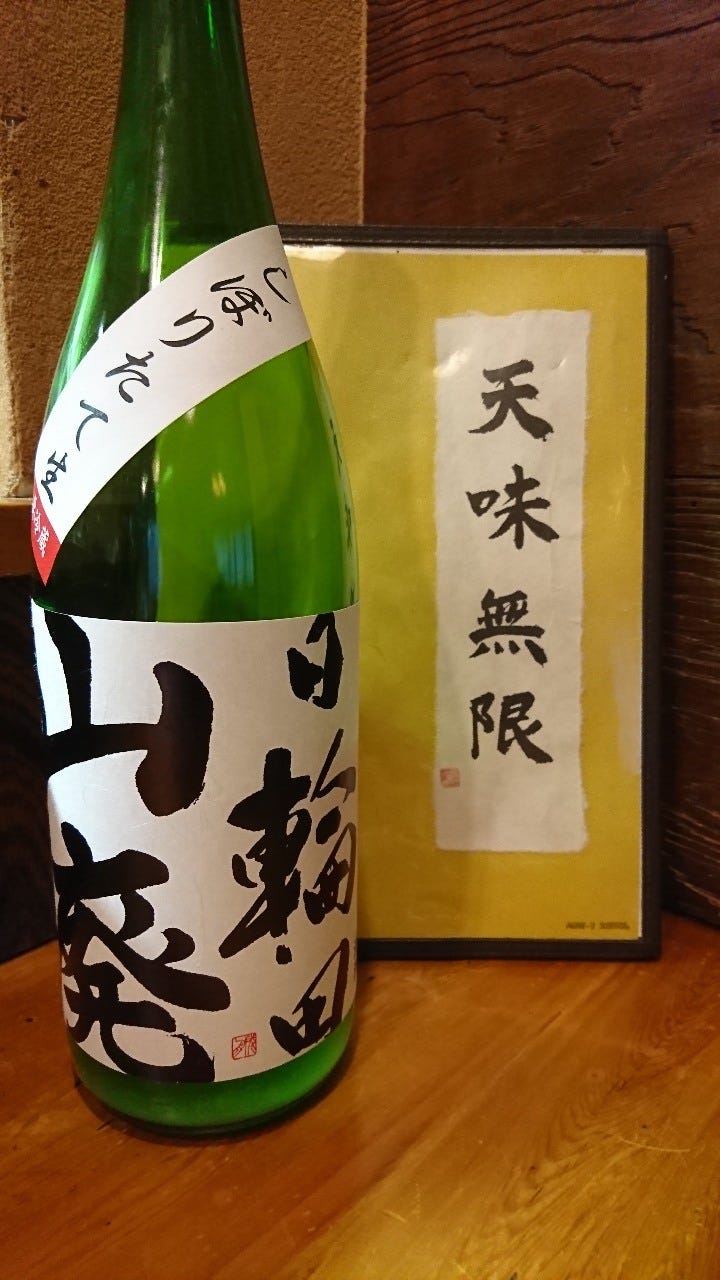 しぼりたて生
日輪田
山廃
天味無限